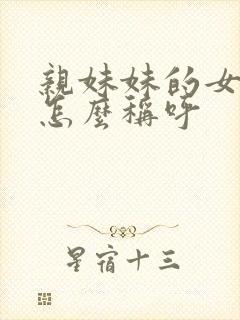 親妹妹的女
怎麼稱呼
星宿十三